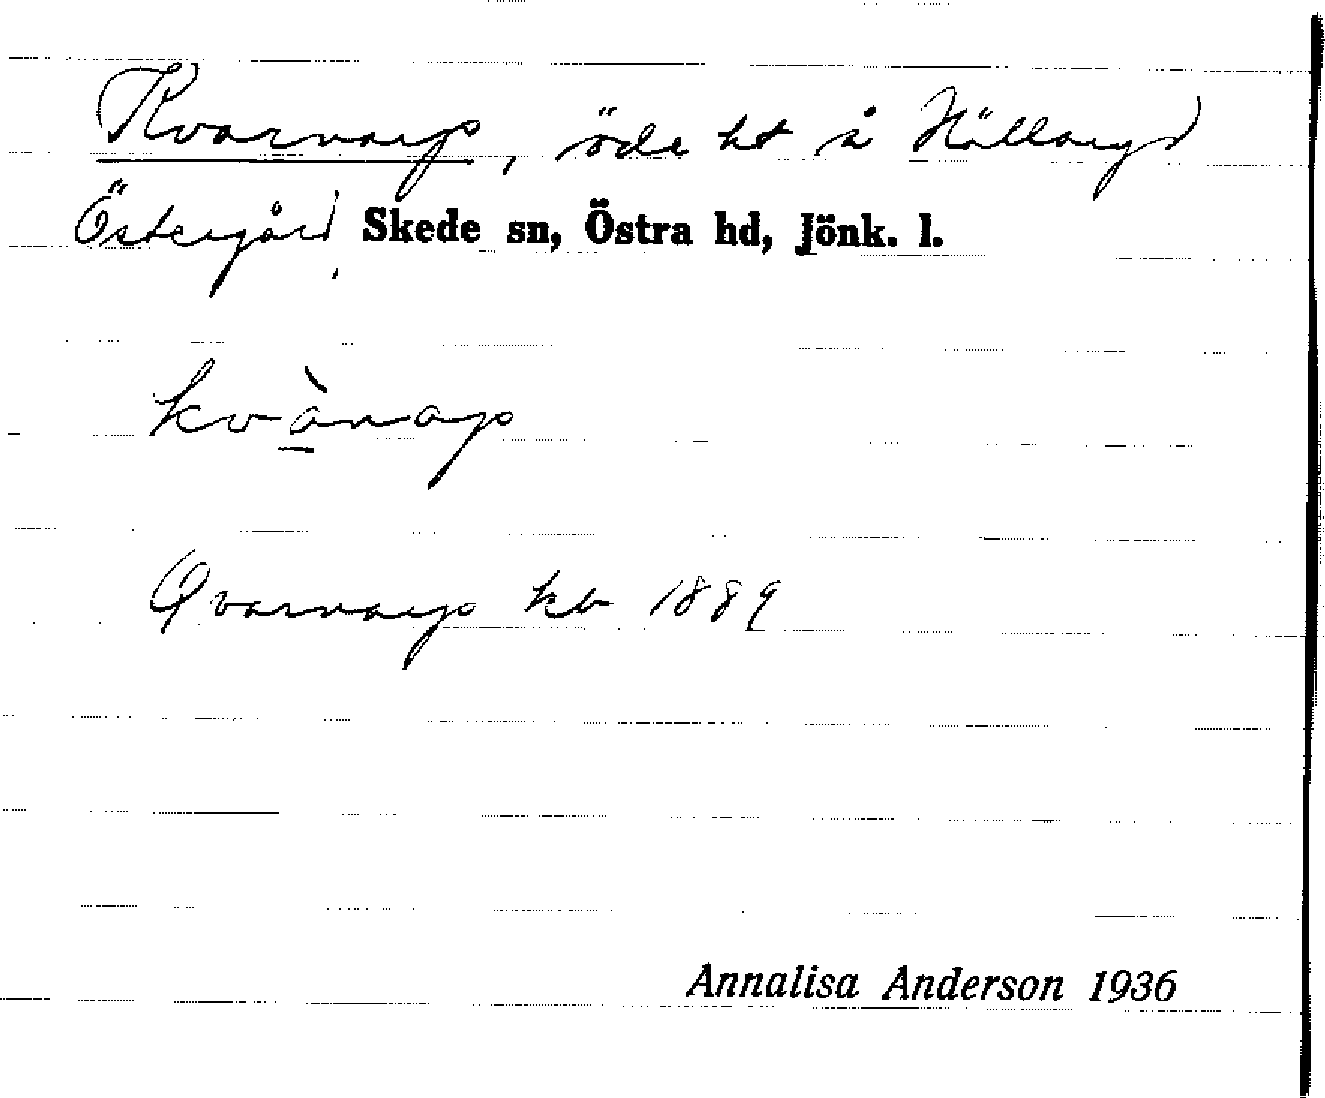 Kvarnarp, öde ht å Hällaryd
Östergård, Skede sn, Östra hd, Jönk. l.
kvànap
Qvarnarp kb 1889
Annalisa Anderson 1936